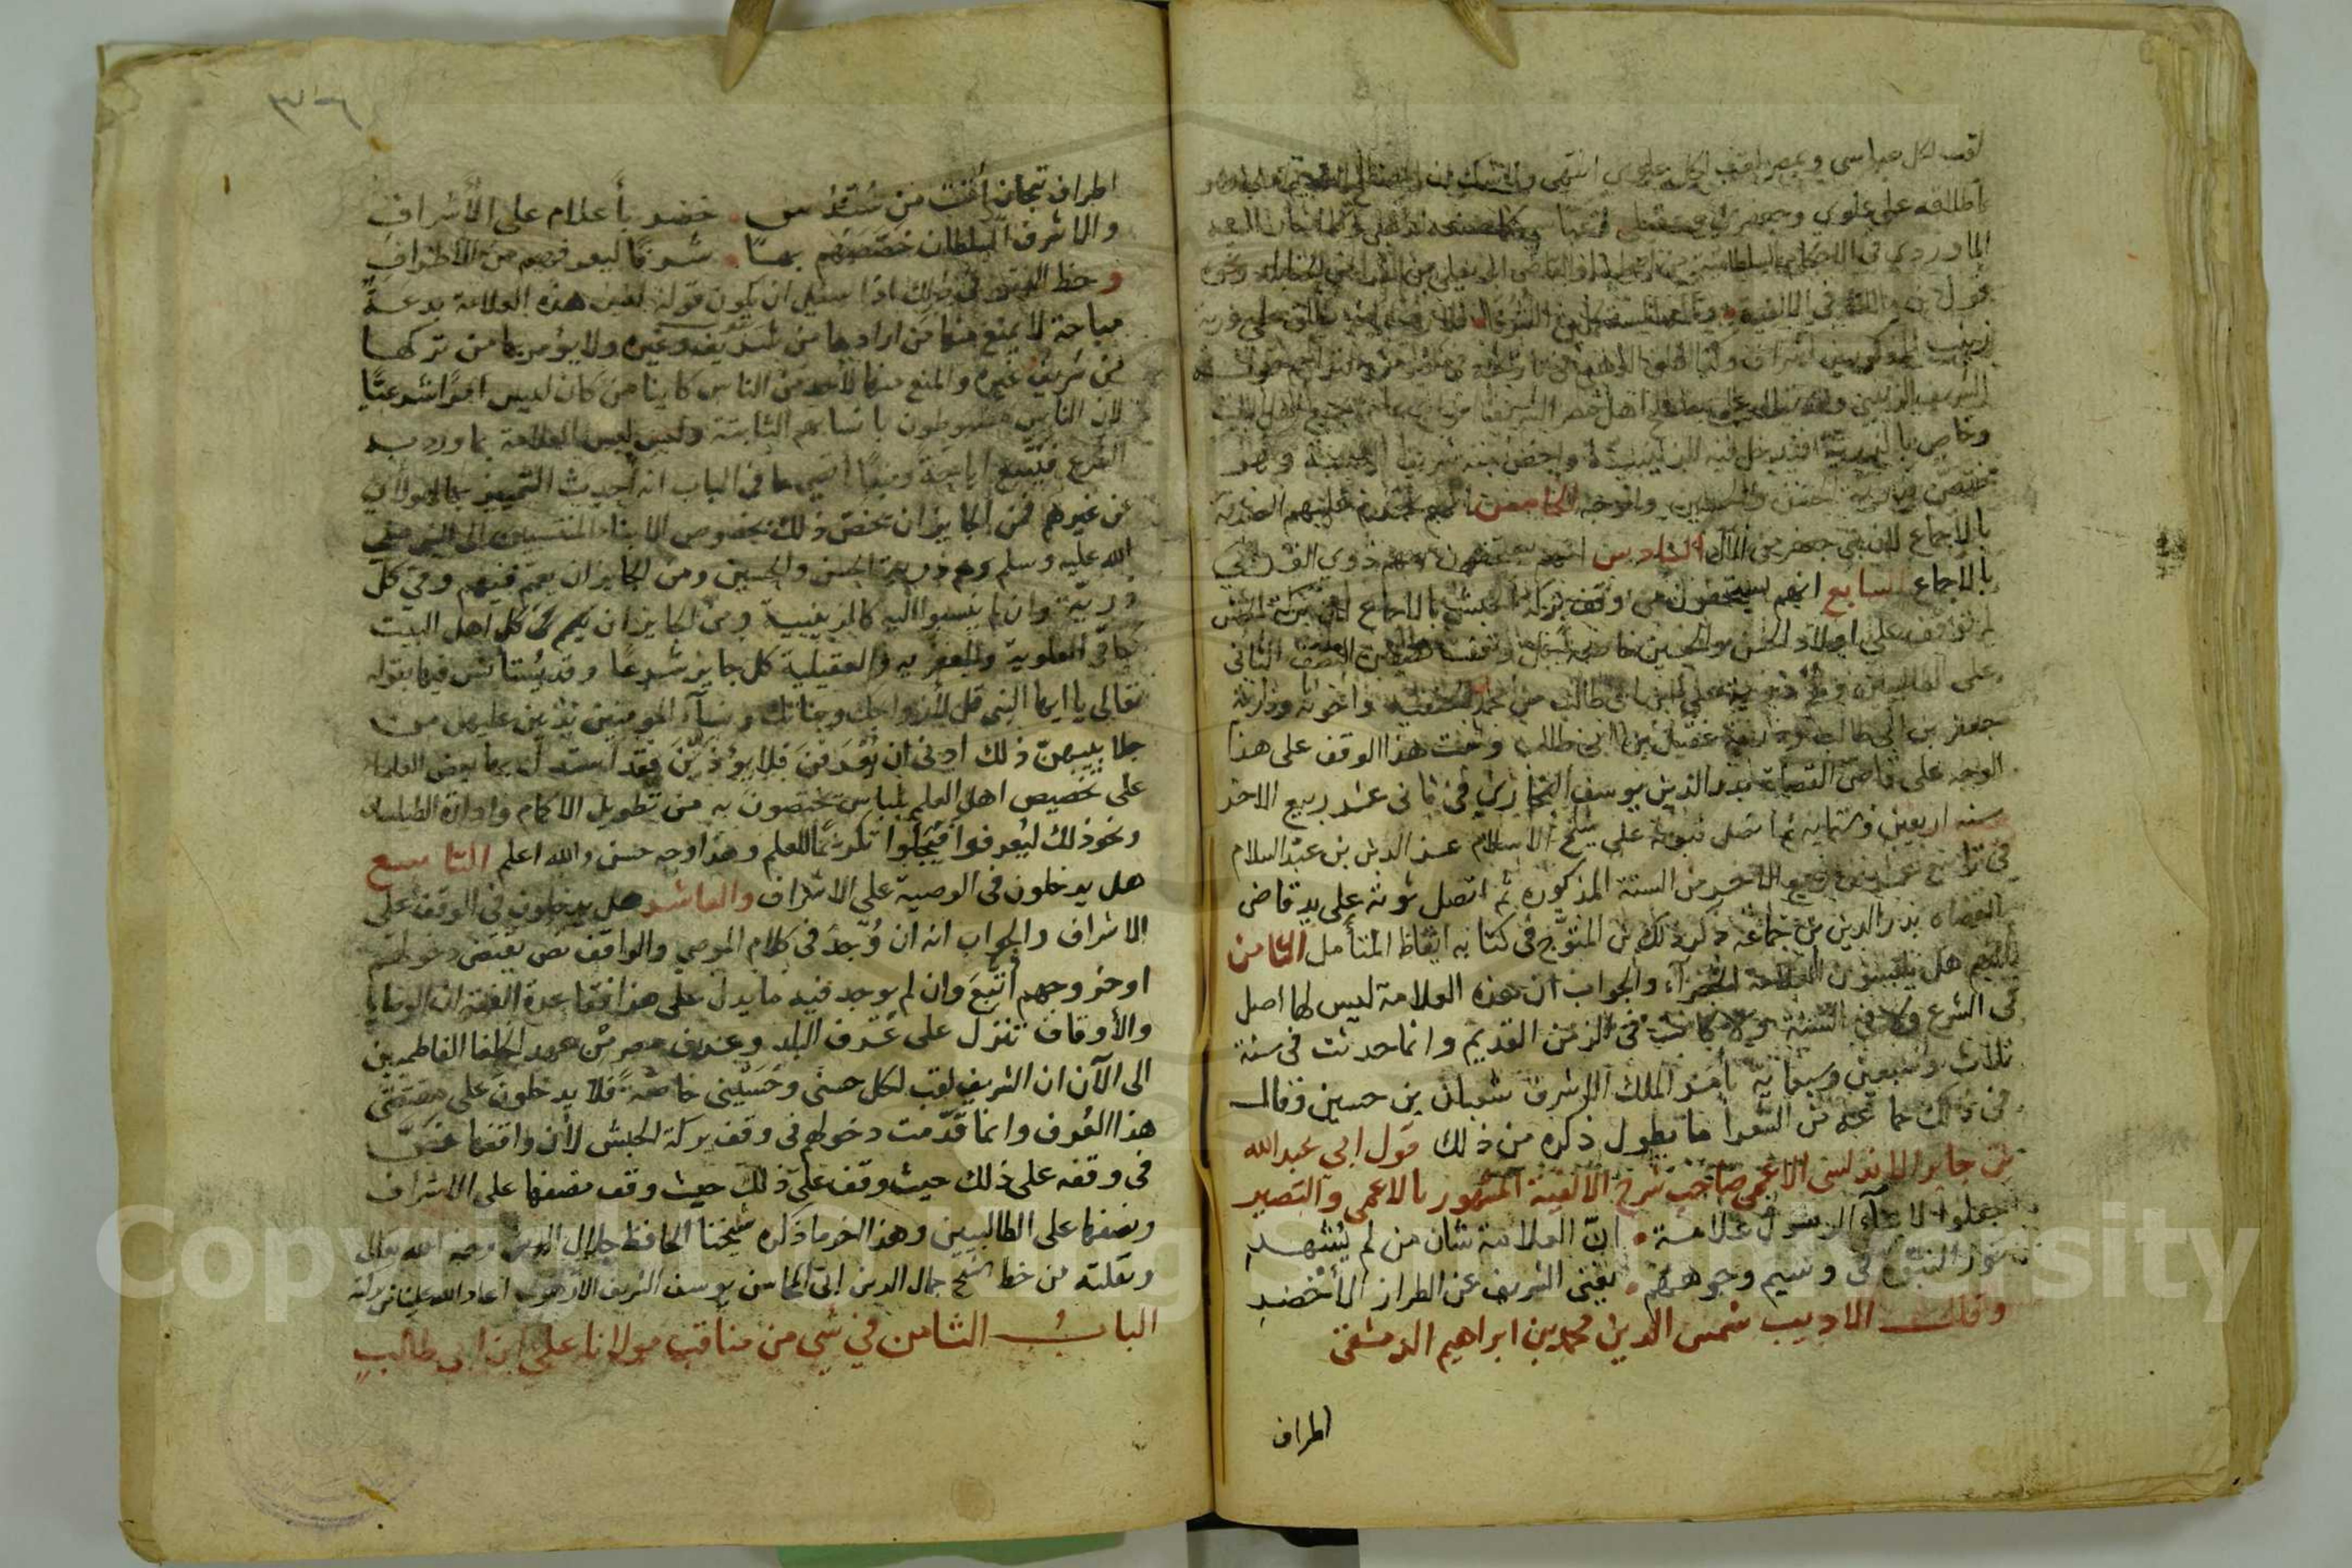 لقب لكل عباسي وبمصر لقب لكل علوي انتهى ولا شك ان المصطلح القديم اولى وهو
اطلاقه على كل علوي وجعفري وعقيلي وعباسي كما صنعه الذهبي وكما اشار اليه
الماوردي في الاحكام السلطانية من اصحابنا والقاضي ابو يعلى من الحنابلة ونحوه
قول ابن مالك في الالفية وآله المستكملين الشرفا فلا ريب انه يطلق على ذرية
زينب المذكورين اشراف وكم اطلق الذهبي في تاريخه في كثير من التراجم قوله
الشريف الزينبي وقد يقال يطلق على مصطلح اهل مصر الشرف انواع عام لجميع اهل البيت
وخاص بالذرية فيدخل فيه الزينبية واخص منه شرف النسبة وهو
مختص بذرية الحسن والحسين والوجه الخامس انهم تحرم عليهم الصدقة
بالاجماع لان بني جعفر من الآل السادس انهم يستحقون سهم ذوي القربى
بالاجماع السابع انهم يستحقون من وقف بركة الحبش بالاجماع لان بركة الحبش
لم توقف على اولاد الحسن والحسين خاصة بل وقفت نصفين النصف الثاني
على الطالبيين وهم ذرية علي بن ابي طالب من محمد بن الحنفية واخوته وذرية
جعفر بن ابي طالب وذرية عقيل بن ابي طالب وثبت هذا الوقف على هذا
الوجه على قاضي القضاة بدر الدين يوسف السنجاري في ثاني عشر ربيع الاخر
سنة اربعين وستماية ثم اتصل ثبوته على شيخ الاسلام عز الدين بن عبد السلام
في تاسع عشرين ربيع الاخر من السنة المذكورة ثم اتصل ثبوته على يد قاضي
القضاه بدر الدين بن جماعة ذكر ذلك بن المتوج في كتابه ايقاظ المتأمل الثامن
انهم هل يلبسون العلامة الخضرآء والجواب ان هذه العلامة ليس لها اصل
في الشرع ولا في السنة ولا كانت في الزمن القديم وانما حدثت في سنة
ثلاث وسبعين وسبعماية بامر الملك الاشرف شعبان بن حسين وقال
في ذلك جماعة من الشعرا ما يطول ذكره من ذلك قول ابي عبد الله
بن جابر الاندلسى الاعمى صاحب شرح الالفية المشهور بالاعمى والبصير
جعلوا لابنآء الرسول علامة ان العلامة شان من لم يُشهر
نور النبوة في وسيم وجوههم يغني الشريف عن الطراز الأخضر
وقال الاديب شمس الدين محمد بن ابراهيم الدمشقي
اطراف
٣٠٦
اطراف تيجان أتت من سُندُس خضر بأعلام على الأشراف
والاشرف السلطان خصّصهم بها شرفًا ليعرفهم من الأطراف
وحظ الفقيه في ذلك اذا سئل ان يكون قوله لبس هذه العلامة بدعة
مباحة لا يمنع منها من ارادها من شريف وغيره ولا يؤمر بها من تركها
من شريف وغيره والمنع منها لأحد من الناس كاينا من كان ليس امرًا شرعيًا
لان الناس مضبوطون بانسابهم الثابتة وليس لبس العلامة بما ورد به
الشرع فيُتبع اباحة ومنعًا اقصى ما في الباب انه أحدث التمييز بها لهولآء
عن غيرهم فمن الجايز ان يخص ذلك بخصوص الابناء المنتسبين الى النبي صلى
الله عليه وسلم وهم ذرية الحسن والحسين ومن الجايز ان يعم فيهم وفي كل
ذريّة وان لم ينسبوا اليه كالزينبية ومن الجايز ان يعم في كل اهل البيت
كباقي العلوية والجعفريه والعقيلية كل جايز شرعا وقد يُستأنس فيها بقوله
تعالى يا ايها النبي قل لأزواجك وبناتك ونسآء المومنين يدنين عليهن من
جلابيبهن ذلك ادنى ان يُعرَفنَ فلا يؤذَينَ فقد استدل بها بعض العلماء
على تخصيص اهل العلم بلباس يختصون به من تطويل الاكمام وادارة الطيلسان
ونحو ذلك ليُعرفوا فيُبجلوا تكريمًا للعلم وهذا وجه حسن والله اعلم التاسع
هل يدخلون في الوصية على الاشراف والعاشر هل يدخلون في الوقف على
الاشراف والجواب انه ان وُجد في كلام الموصي والواقف نص يقتضي دخولهم
او خروجهم أتّبعَ وان لم يوجد فيه ما يدل على هذا فقاعدة الفقه ان الوصايا
والأوقاف تنزل على عُرف البلد وعرف مصر من عهد الخلفا الفاطميين
الى الآن ان الشريف لقب لكل حسنى وحُسَيني خاصةً فلا يدخلون على مقتضى
هذا العُرف وانما قدّمت دخولهم في وقف بركة الحبش لأن واقفها نصّ
في وقفه على ذلك حيث وقف نصفها على الاشراف
ونصفها على الطالبيين وهذا اخر ما ذكره شيخنا الحافظ جلال الدين رحمه الله تعالى
ونقلته من خط الشيخ جمال الدين ابي المحاسن يوسف الشريف الارميوني اعاد الله علينا من بركته
الباب الثامن في شي من مناقب مولانا علي ابن ابي طالب